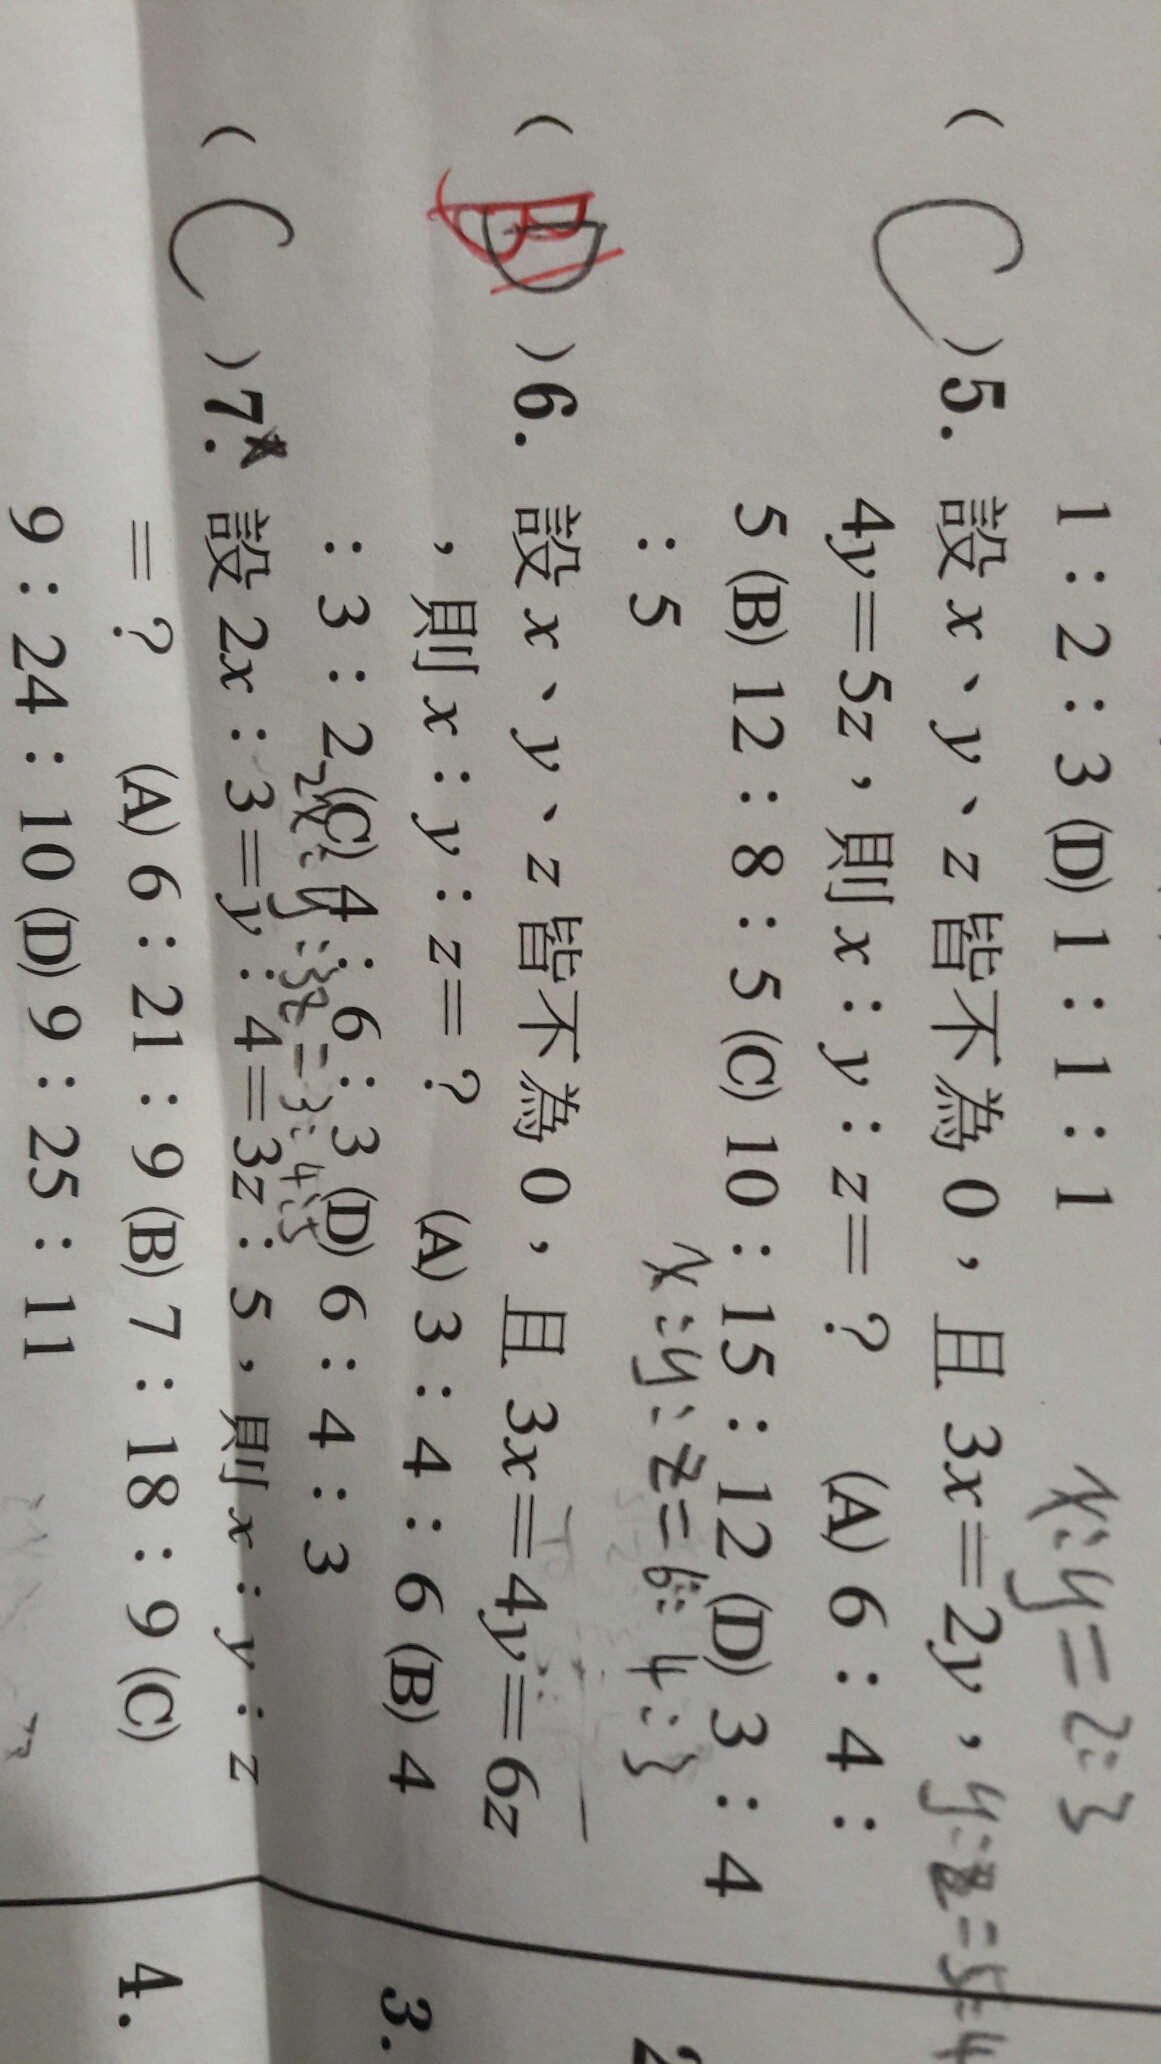 1：2：3 (D) 1：1：1
x:y=2:3
( C )5. 設 x、y、z 皆不為 0，且 3x＝2y，
y:z=5:4
4y＝5z，則 x：y：z＝？ (A) 6：4：
5 (B) 12：8：5 (C) 10：15：12 (D) 3：4
：5
x:y:z=6:4:3
( B )6. 設 x、y、z 皆不為 0，且 3x＝4y＝6z
，則 x：y：z＝？ (A) 3：4：6 (B) 4
：3：2 (C) 4：6：3 (D) 6：4：3
2x:y:3z=3:4:5
( C )7. 設 2x：3＝y：4＝3z：5，則 x：y：z
＝？ (A) 6：21：9 (B) 7：18：9 (C)
9：24：10 (D) 9：25：11
2
3.
4.